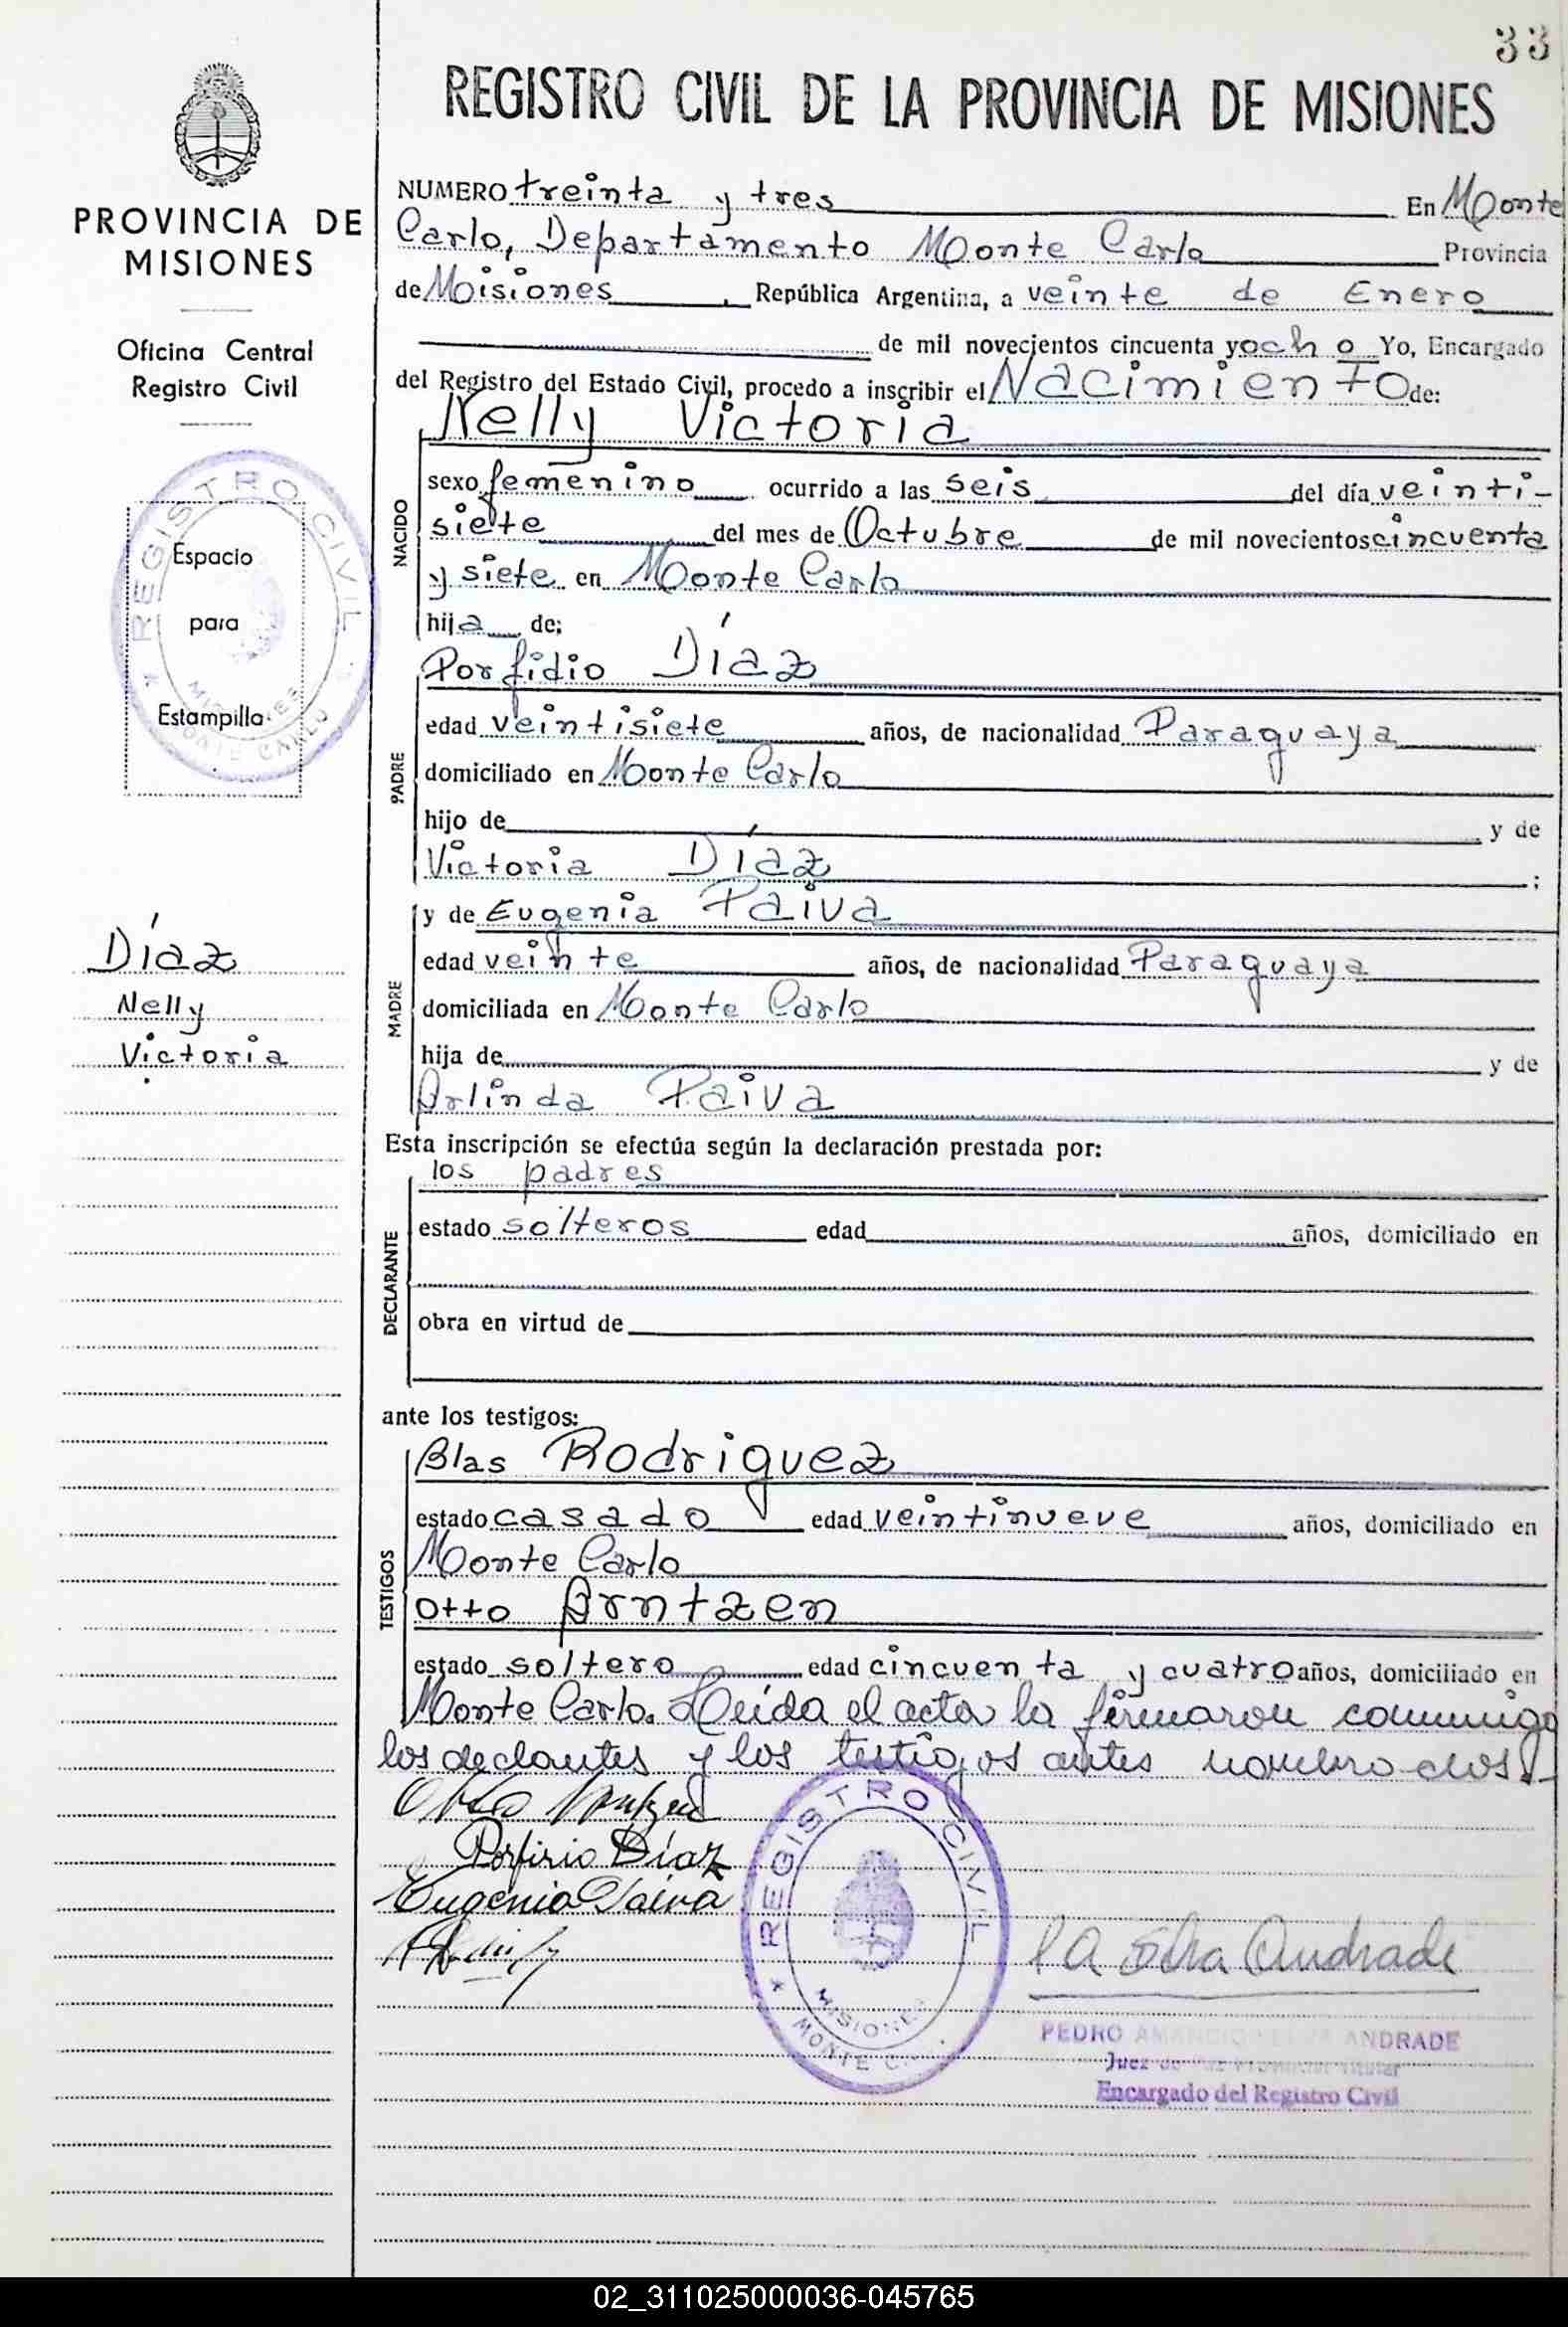 33
REGISTRO CIVIL DE LA PROVINCIA DE MISIONES
PROVINCIA DE
MISIONES
Oficina Central
Registro Civil
REGISTRO CIVIL
MISIONES
MONTE CARLO
Espacio
para
Estampilla
Díaz
Nelly
Victoria
NUMERO treinta y tres En Monte
Carlo, Departamento Monte Carlo Provincia
de Misiones, República Argentina, a veinte de Enero
de mil novecientos cincuenta y ocho Yo, Encargado
del Registro del Estado Civil, procedo a inscribir el Nacimiento de:
Nelly Victoria
NACIDO
sexo femenino ocurrido a las seis del día veinti-
siete del mes de Octubre de mil novecientos cincuenta
y siete en Monte Carlo
hija de:
Porfidio Díaz
PADRE
edad veintisiete años, de nacionalidad Paraguaya
domiciliado en Monte Carlo
hijo de y de
Victoria Díaz ;
MADRE
y de Eugenia Paiva
edad veinte años, de nacionalidad Paraguaya
domiciliada en Monte Carlo
hija de y de
Arlinda Paiva
Esta inscripción se efectúa según la declaración prestada por:
los padres
DECLARANTE
estado solteros edad años, domiciliado en
obra en virtud de
ante los testigos:
Blas Rodriguez
TESTIGOS
estado casado edad veintinueve años, domiciliado en
Monte Carlo
Otto Arntzen
estado soltero edad cincuenta y cuatro años, domiciliado en
Monte Carlo. Leída el acta la firmaron conmigo
los declantes y los testigos antes nombrados.-
Otto Arntzen
Porfirio Díaz
Eugenia Paiva
REGISTRO CIVIL
MISIONES
MONTE C
PA Silva Andrade
PEDRO ANDRADE
Juez
Encargado del Registro Civil
02_311025000036-045765